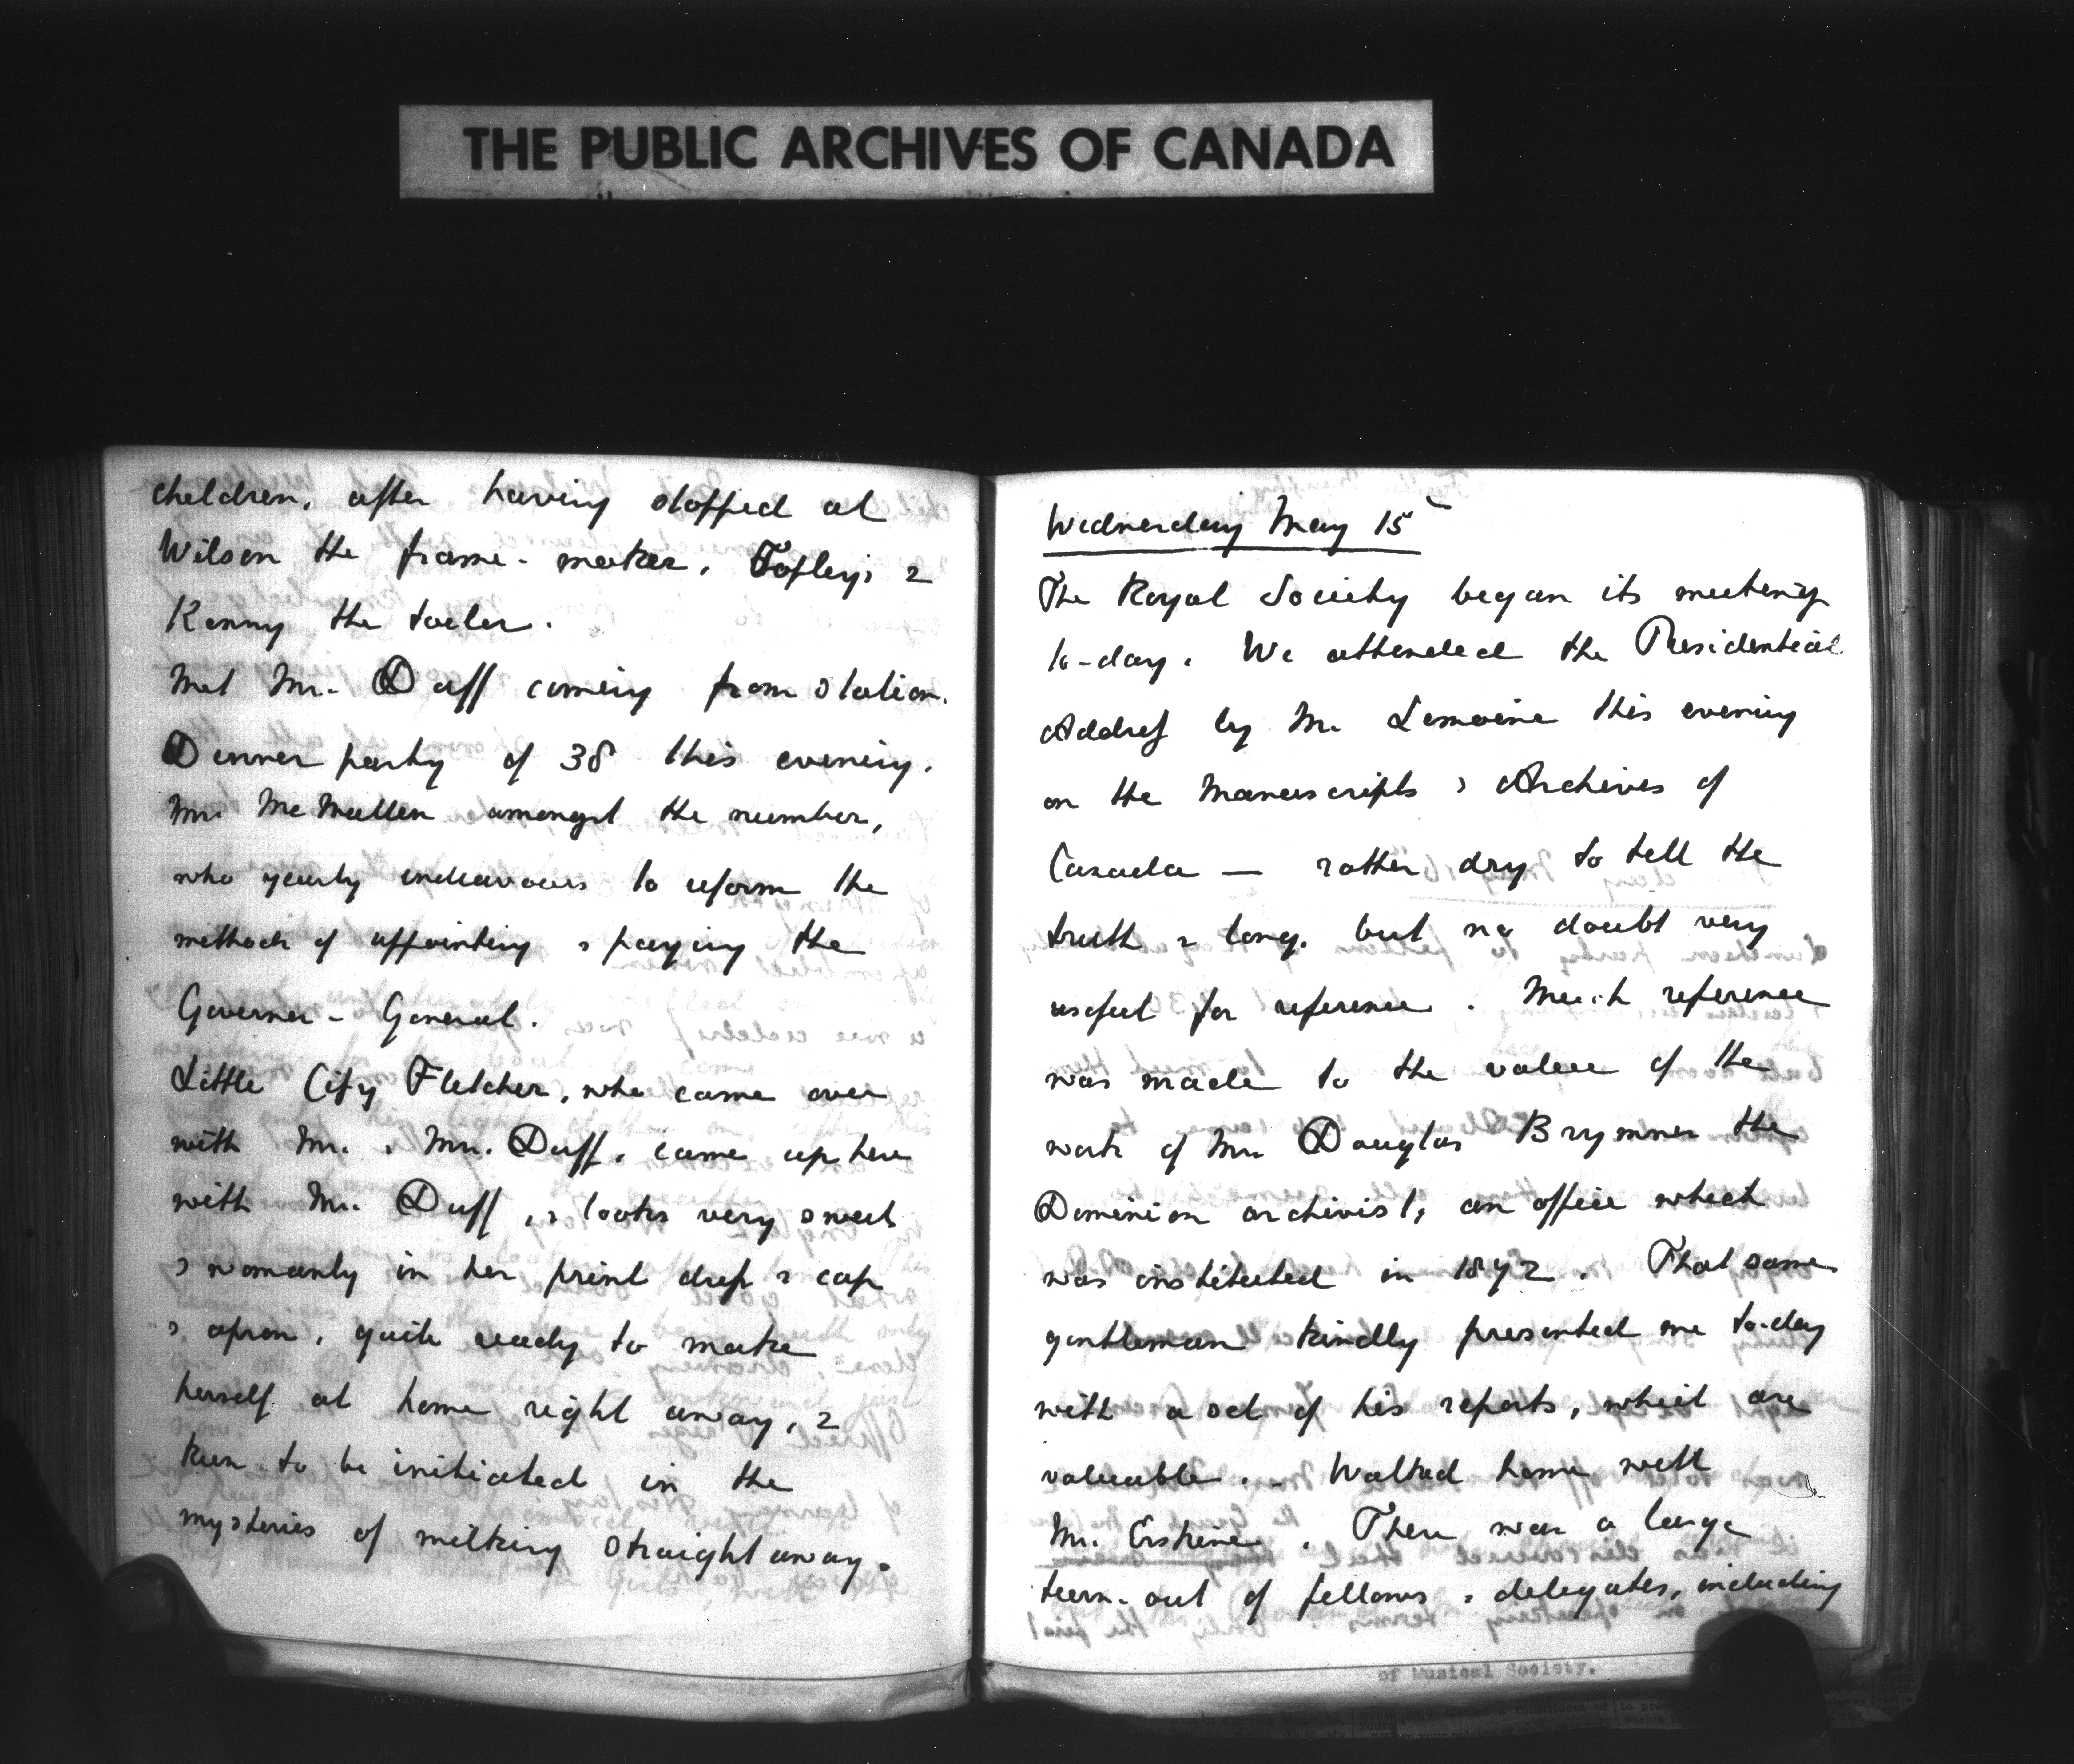 THE PUBLIC ARCHIVES OF CANADA
children, after having stopped at
Wilson the frame-maker, Topley's &
Kenny the toiler.
Met Mr. Duff coming from station.
Dinner party of 38 this evening.
Mr. McMullen amongst the number,
who yearly endeavours to reform the
method of appointing & paying the
Governor-General.
Little City Fletcher, who came over
with Mr. & Mrs. Duff, came up here
with Mr. Duff, & looks very sweet
& womanly in her print dress & cap
& apron, quite ready to make
herself at home right away, &
keen to be initiated in the
mysteries of milking straight away.
Wednesday May 15
The Royal Society began its meeting
to-day. We attended the Presidential
Address by Mr. Lemoine this evening
on the Manuscripts & Archives of
Canada — rather dry to tell the
truth & long, but no doubt very
useful for reference. Much reference
was made to the value of the
work of Mr. Douglas Brymner the
Dominion archivist, an office which
was instituted in 1872. That same
gentleman kindly presented me to-day
with a set of his reports, which are
valuable. – Walked home with
Mr. Erskine. There was a large
turn-out of fellows & delegates, including
of Musical Society.